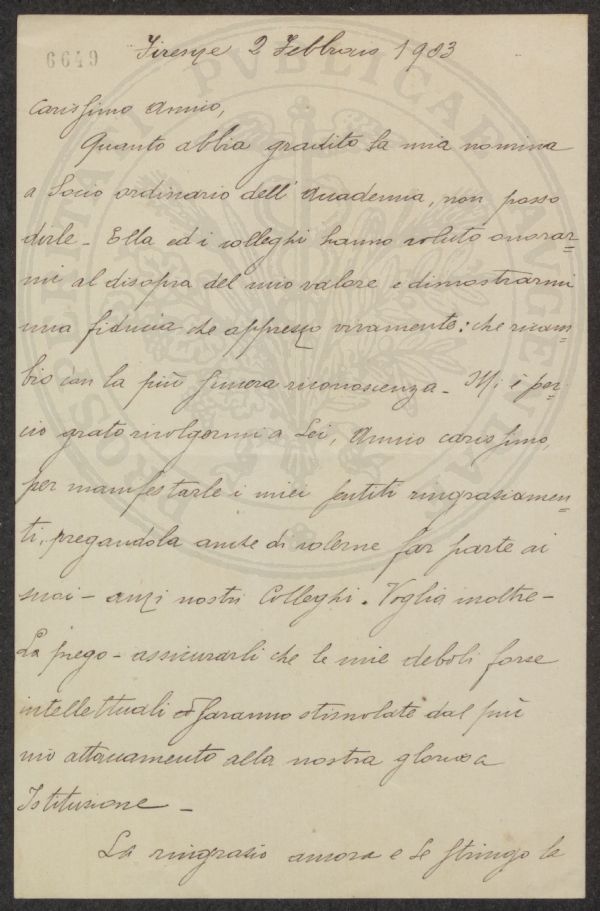 6649
Firenze 2 Febbraio 1903
Carissimo Amico,
Quanto abbia gradito la mia nomina
a Socio ordinario dell'Accademia, non posso
dirle - Ella ed i colleghi hanno voluto onorar=
mi al disopra del mio valore e dimostrarmi
una fiducia che apprezzo vivamente: che ricam=
bio con la più sincera riconoscenza - Mi è per=
ciò grato rivolgermi a Lei, Amico carissimo,
per manifestarle i miei sentiti ringraziamen=
ti, pregandola anche di volerne far parte ai
suoi - anzi nostri Colleghi. Voglia inoltre -
La prego - assicurarli che le mie deboli forze
intellettuali saranno stimolate dal più
vivo attaccamento alla nostra gloriosa
Istituzione -
La ringrazio ancora e Le stringo la